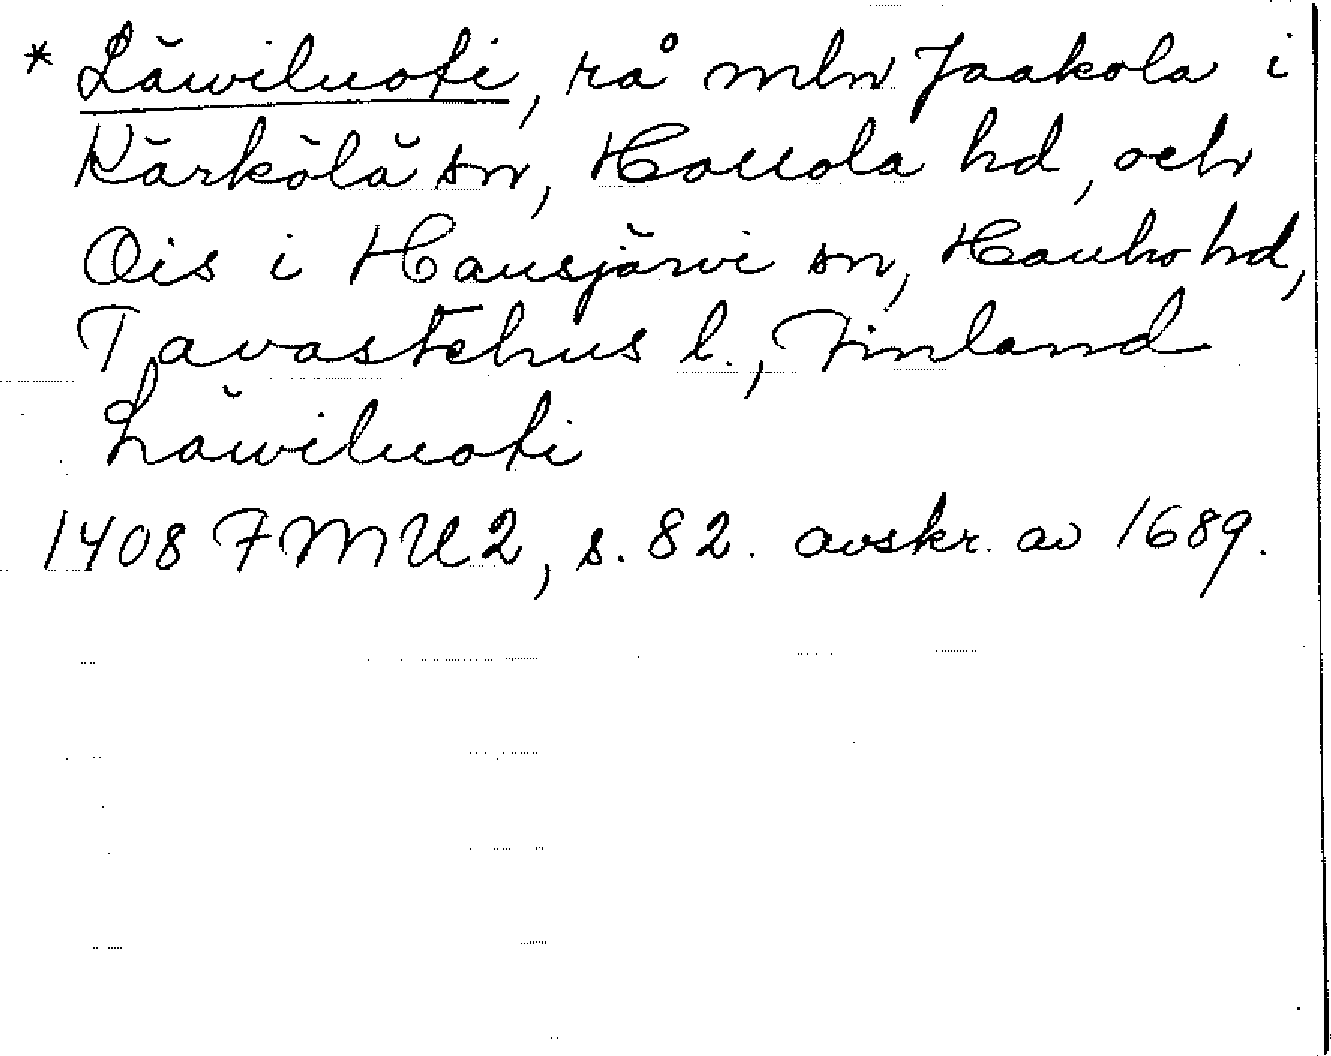 * Läwiluoti, rå mln Jaakola i
Kärkölä sn, Hollola hd, och
Ois i Hausjärvi sn, Hauho hd,
Tavastehus l., Finland
Läwiluoti
1408 FMU 2, s. 82. avskr. av 1689.